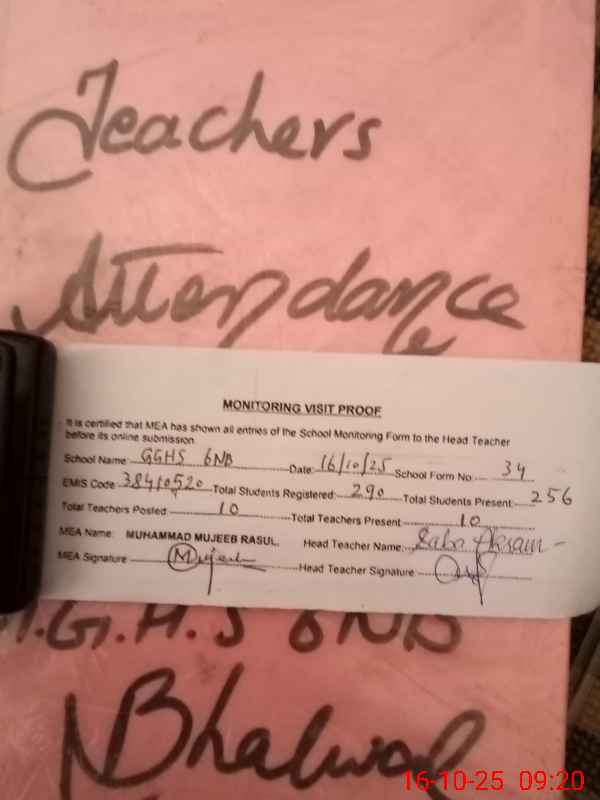 Teachers
Attendance
MONITORING VISIT PROOF
It is certified that MEA has shown all entries of the School Monitoring Form to the Head Teacher
before its online submission
School Name: GGHS 6NB Date: 16/10/25 School Form No: 34
EMIS Code: 38410520 Total Students Registered: 290 Total Students Present: 256
Total Teachers Posted: 10 Total Teachers Present: 10
MEA Name: MUHAMMAD MUJEEB RASUL. Head Teacher Name: Saba Akram
MEA Signature Mujeeb Head Teacher Signature
G.H.S 6NB
Bhalwal
16-10-25 09:20